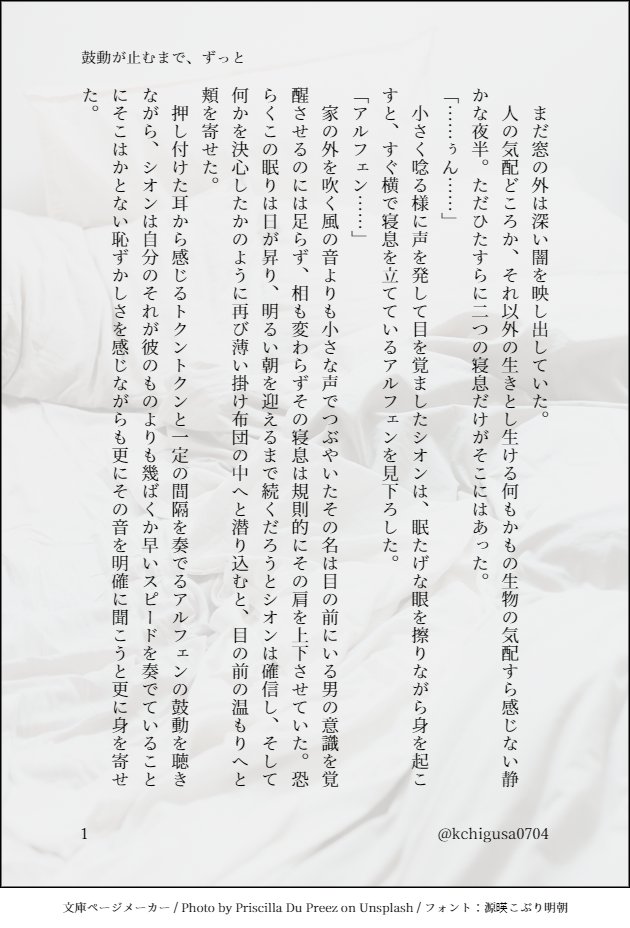 鼓動が止むまで、ずっと
まだ窓の外は深い闇を映し出していた。
人の気配どころか、それ以外の生きとし生ける何もかもの生物の気配すら感じない静
かな夜半。ただひたすらに二つの寝息だけがそこにはあった。
「……ぅん……」
小さく唸る様に声を発して目を覚ましたシオンは、眠たげな眼を擦りながら身を起こ
すと、すぐ横で寝息を立てているアルフェンを見下ろした。
「アルフェン……」
家の外を吹く風の音よりも小さな声でつぶやいたその名は目の前にいる男の意識を覚
醒させるのには足らず、相も変わらずその寝息は規則的にその肩を上下させていた。恐
らくこの眠りは日が昇り、明るい朝を迎えるまで続くだろうとシオンは確信し、そして
何かを決心したかのように再び薄い掛け布団の中へと潜り込むと、目の前の温もりへと
頬を寄せた。
押し付けた耳から感じるトクントクンと一定の間隔を奏でるアルフェンの鼓動を聴き
ながら、シオンは自分のそれが彼のものよりも幾ばくか早いスピードを奏でていること
にそこはかとない恥ずかしさを感じながらも更にその音を明確に聞こうと更に身を寄せ
た。
1
@kchigusa0704
文庫ページメーカー / Photo by Priscilla Du Preez on Unsplash / フォント：源暎こぶり明朝